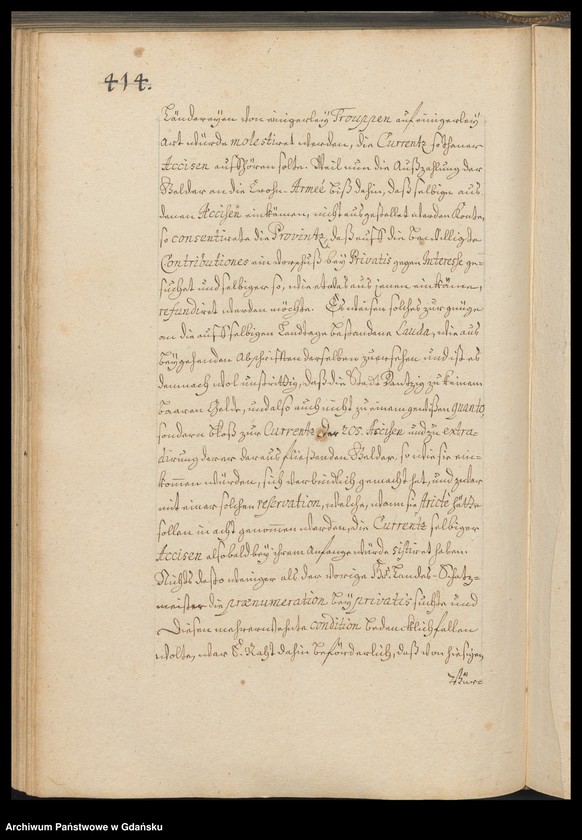 414.
Ländereyen von einigerley Trouppen auf einigerley
art würde molestiret werden, die Currentz sothaner
Accisen auffhören solte. Weil nun die Außzahlung der
Gelder an die Crohn-Armee biß dahin, daß selbige aus
denen Accisen einkämen, nicht ausgestellet werden konte,
so consentirete die Provintz, daß auff die bewilligte
Contributiones ein vorschuß bey Privatis gegen Interesse ge-
suchet und selbiger so, wie etwas aus jenen einkäme,
refundiret werden möchte. Es weisen solches zur gnüge
an die auff selbigen Landtage bestandene Lauda, wie aus
beygehenden Abschrifften derselben zu ersehen und ist es
demnach wol unstrittig, daß die Stadt Dantzig zu keinem
baaren Gelde, und also auch nicht zu einem gewißen quanto,
sondern bloß zur Currentz der 205. Accisen und zu extra-
dirung derer daraus fließenden Gelder, so wie sie ein-
kom̄en würden, sich verbindlich gemacht hat, und zwar
mit einer solchen reservation, welche, wann sie stricte hätte
sollen in acht genom̄en werden, die Currentz selbiger
Accisen alsobald bey ihrem Anfange würde sistiret haben.
Nichts desto weniger als der vorige Hr. Landes-Schatz-
meister die prænumeration bey privatis suchte und
Diesen mehrerwehnte condition bedencklich fallen
wolte, war E. Raht dahin beförderlich, daß von hiesigen
Bür-
Archiwum Państwowe w Gdańsku